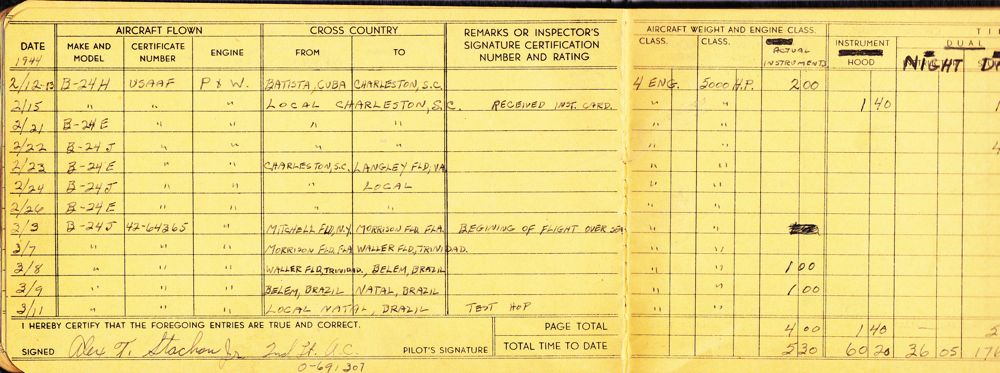 AIRCRAFT FLOWN CROSS COUNTRY REMARKS OR INSPECTOR'S SIGNATURE CERTIFICATION NUMBER AND RATING AIRCRAFT WEIGHT AND ENGINE CLASS.
DATE 1944 MAKE AND MODEL CERTIFICATE NUMBER ENGINE FROM TO CLASS. CLASS. ACTUAL INSTRUMENTS INSTRUMENT HOOD DUAL NIGHT
2/12-13 B-24H USAAF P & W. BATISTA, CUBA CHARLESTON, S.C. 4 ENG. 5000 H.P. 2 00
2/15 " " " LOCAL CHARLESTON, S.C. RECEIVED INST. CARD. " " 1 40
2/21 B-24E " " " " " "
2/22 B-24J " " " " " "
2/23 B-24E " " CHARLESTON, S.C. LANGLEY FLD, VA " "
2/24 B-24J " " " LOCAL " "
2/26 B-24E " " " " " "
3/3 B-24J 42-64365 " MITCHELL FLD, N.Y. MORRISON FLD. FLA. BEGINING OF FLIGHT OVER SEA " "
3/7 " " " MORRISON FLD. FLA WALLER FLD, TRINIDAD. " "
3/8 " " " WALLER FLD, TRINIDAD, BELEM, BRAZIL " " 1 00
3/9 " " " BELEM, BRAZIL NATAL, BRAZIL " " 1 00
3/11 " " " LOCAL NATAL, BRAZIL TEST HOP " "
I HEREBY CERTIFY THAT THE FOREGOING ENTRIES ARE TRUE AND CORRECT. PAGE TOTAL 4 00 1 40 -
SIGNED Alex T. Stachon Jr 2nd Lt. A.C. PILOT'S SIGNATURE TOTAL TIME TO DATE 5 30 60 20 36 05 176
O-691307